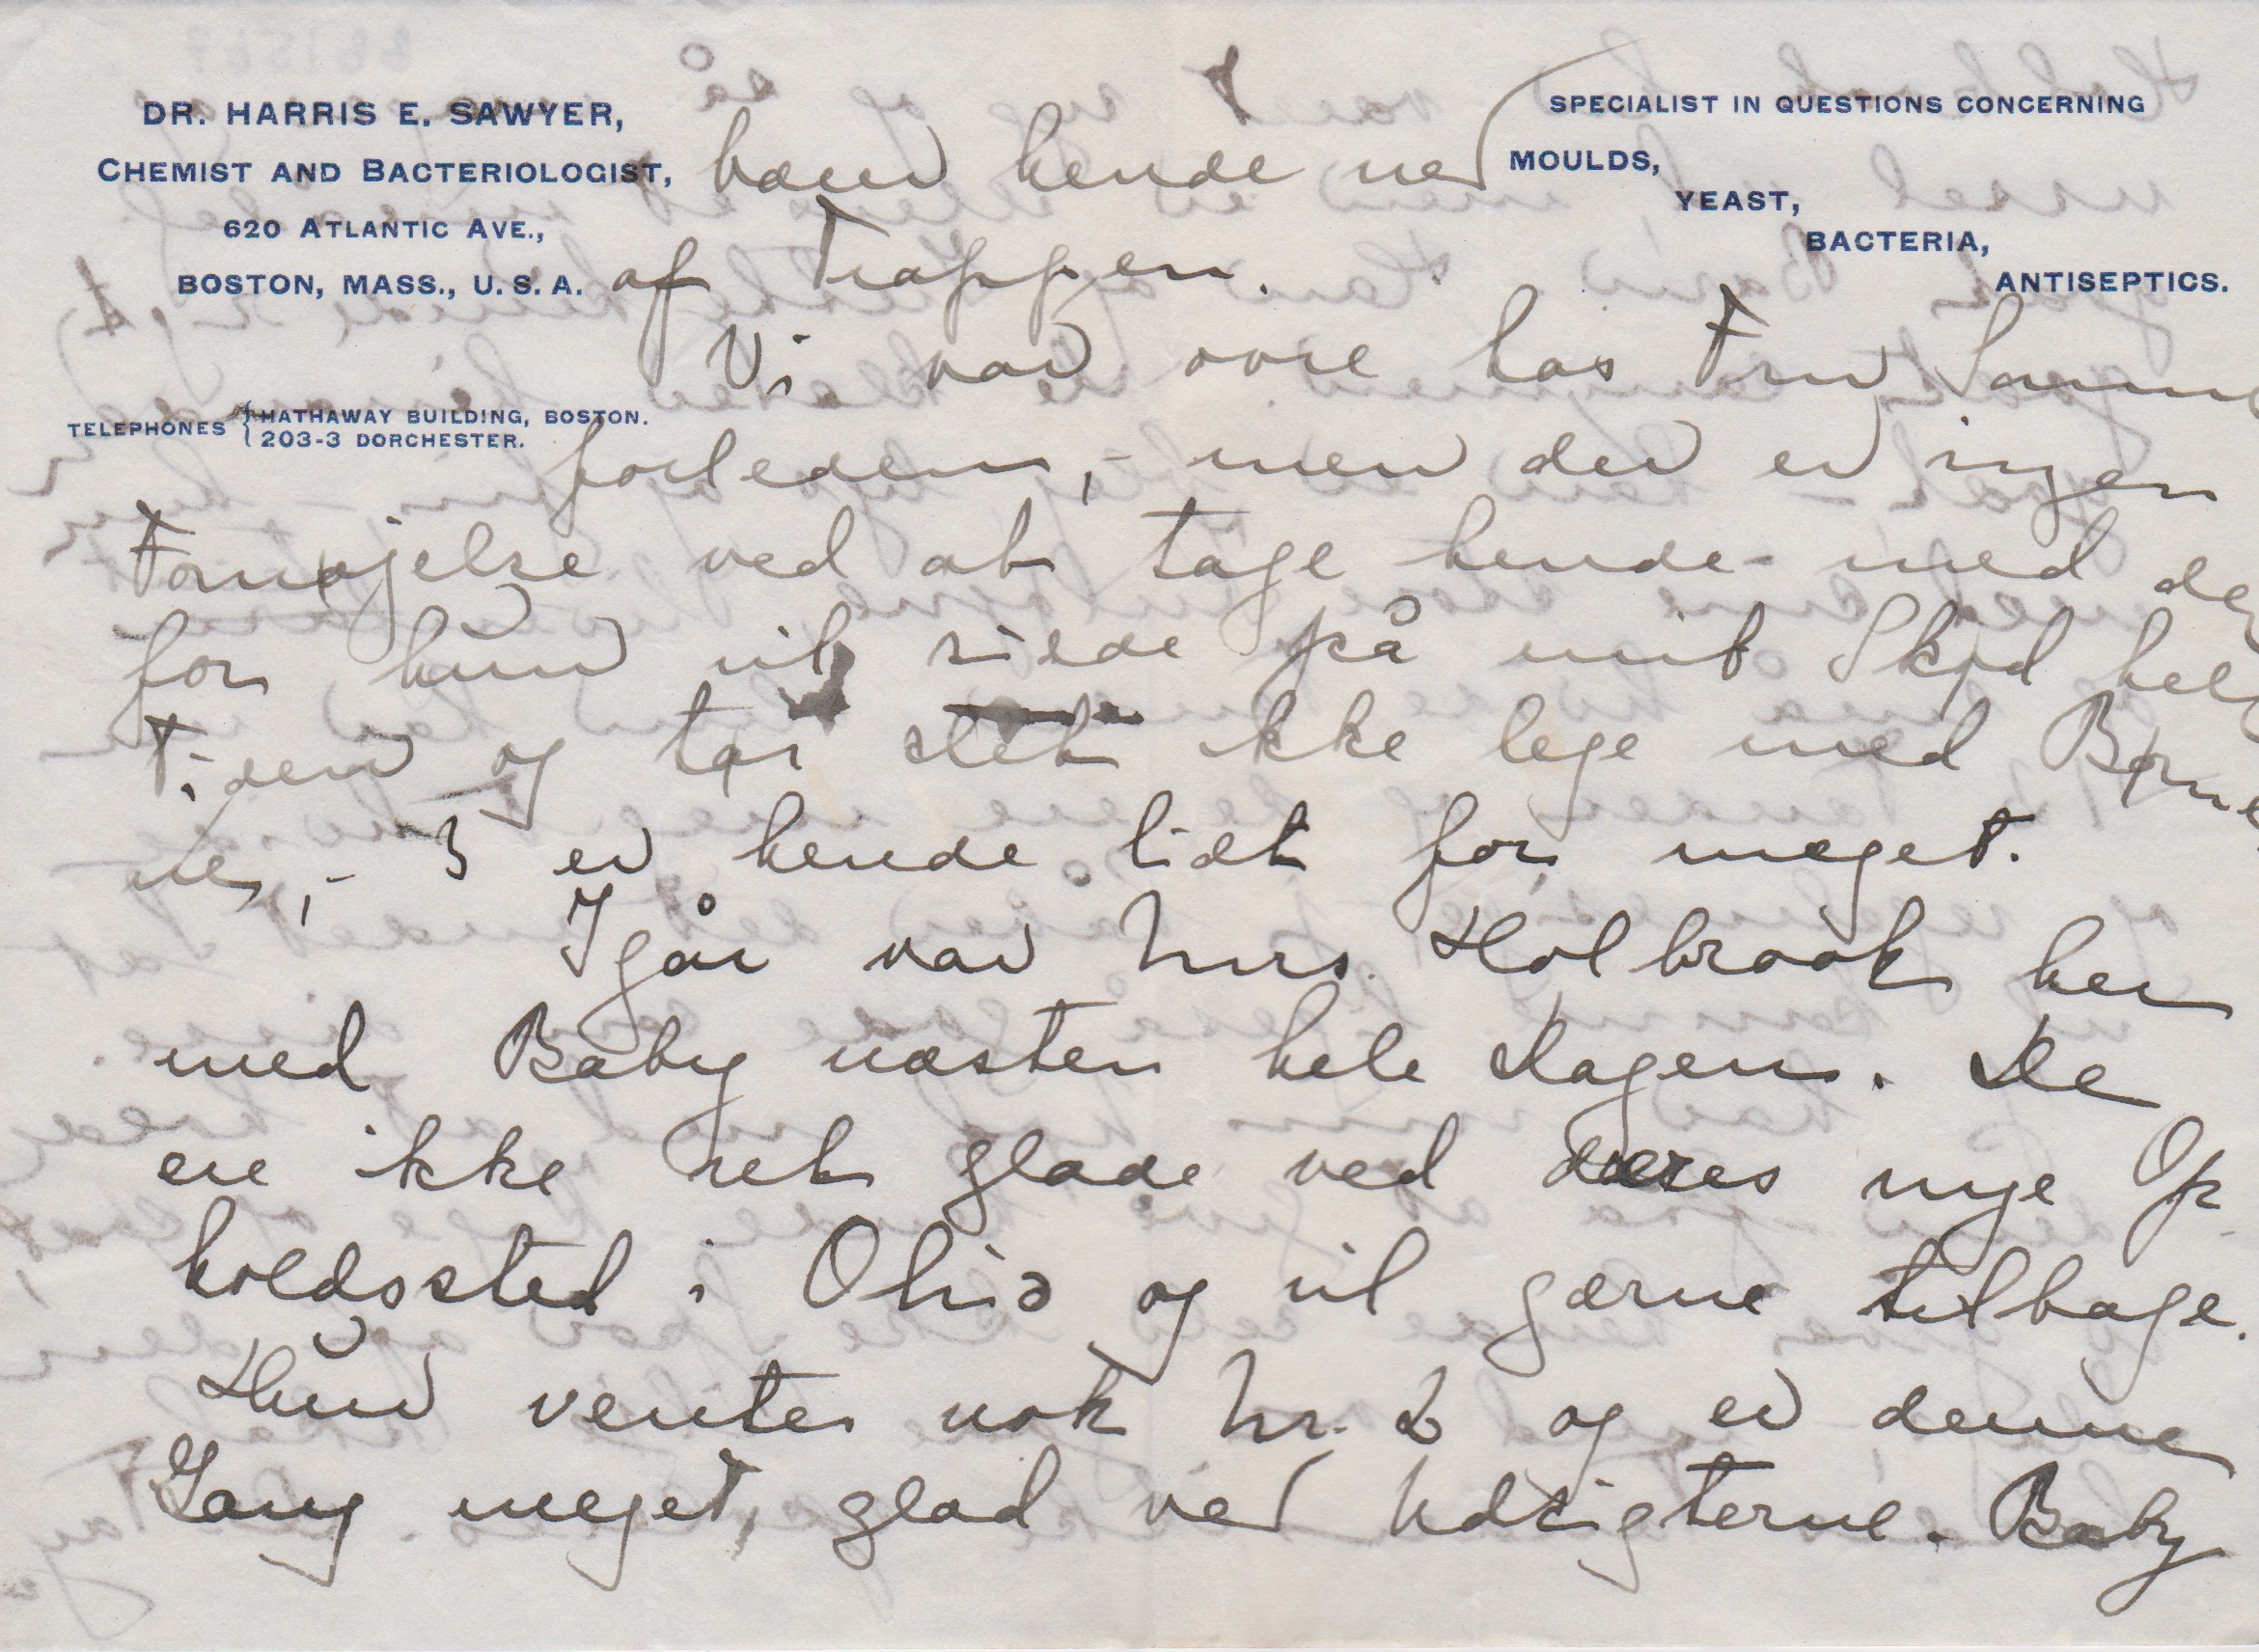 DR. HARRIS E. SAWYER,
CHEMIST AND BACTERIOLOGIST,
620 ATLANTIC AVE.,
BOSTON, MASS., U. S. A.
TELEPHONES { HATHAWAY BUILDING, BOSTON.
203-3 DORCHESTER.
SPECIALIST IN QUESTIONS CONCERNING
MOULDS,
YEAST,
BACTERIA,
ANTISEPTICS.
så
hende ned
af Trappen.
Vi var ovre hos Fru
forleden, - men der er ingen
Fornøjelse ved at tage hende med
for hun vil sidde på mit Skød
Tiden og tør slet ikke lege med Børne
ne, - 3 er hende lidt for meget.
Igår var Mrs. Holbrook her
med Baby næsten hele Dagen. De
ere ikke ret glade ved deres nye Op
holdssted i Ohio og vil gærne tilbage.
Hun venter nok Nr. 2 og er denne
Gang meget glad ved Udsigterne. Baby